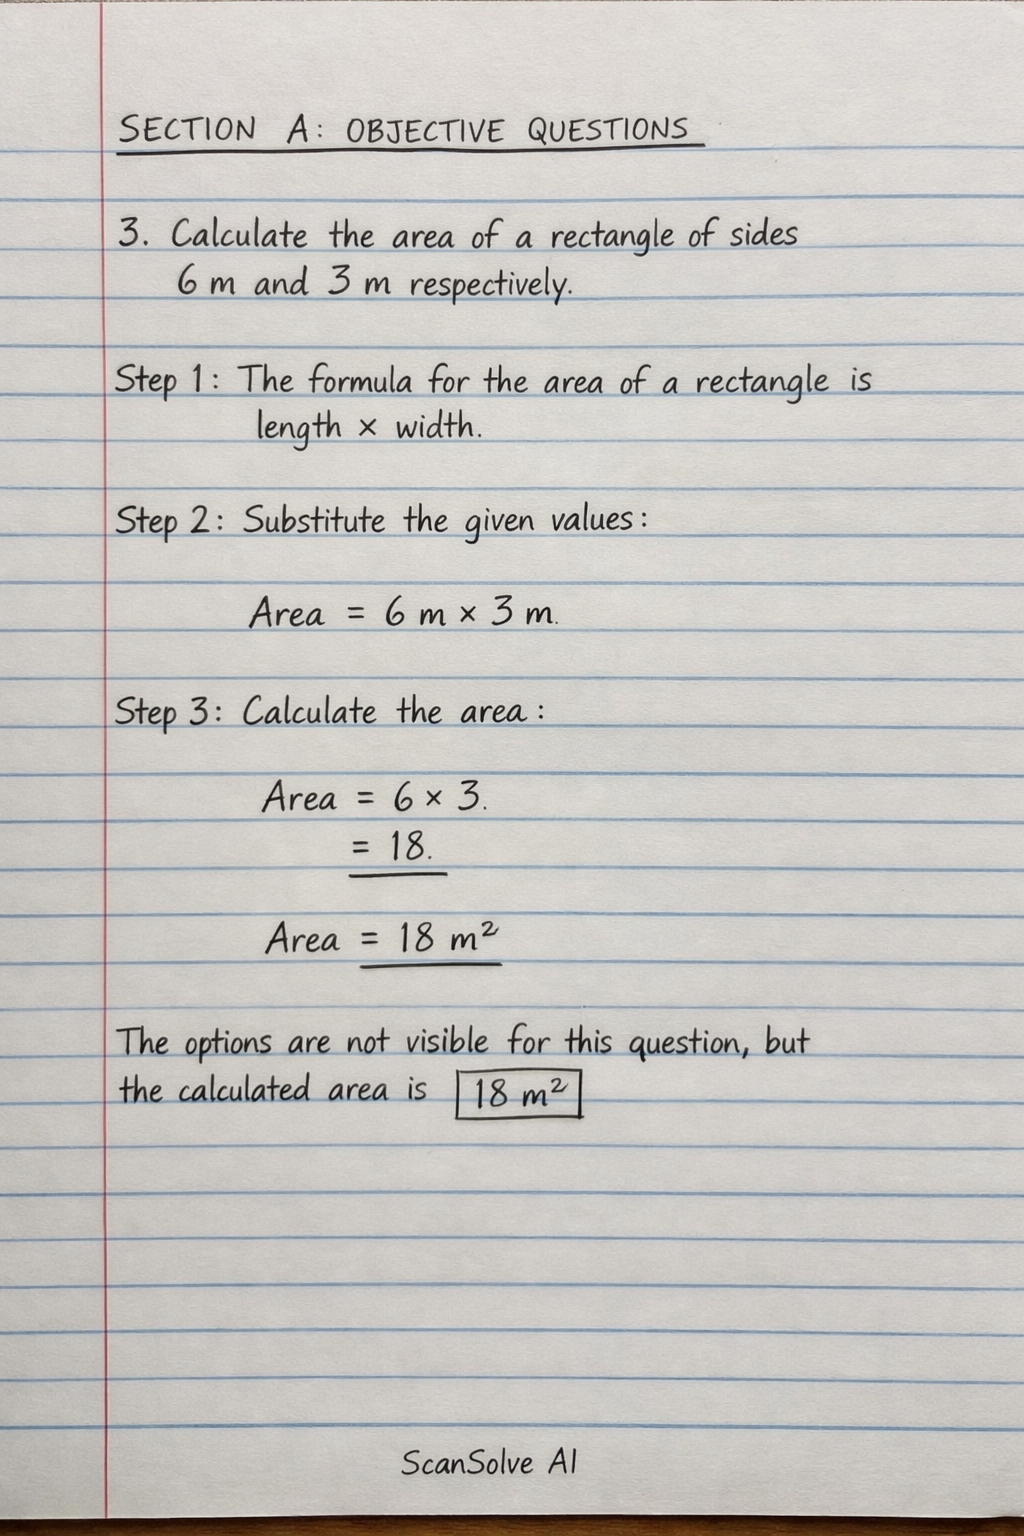 SECTION A: OBJECTIVE QUESTIONS
3. Calculate the area of a rectangle of sides
6 m and 3 m respectively.
Step 1: The formula for the area of a rectangle is
length × width.
Step 2: Substitute the given values:
Area = 6 m × 3 m.
Step 3: Calculate the area:
Area = 6 × 3.
= 18.
Area = 18 m²
The options are not visible for this question, but
the calculated area is 18 m²
ScanSolve AI